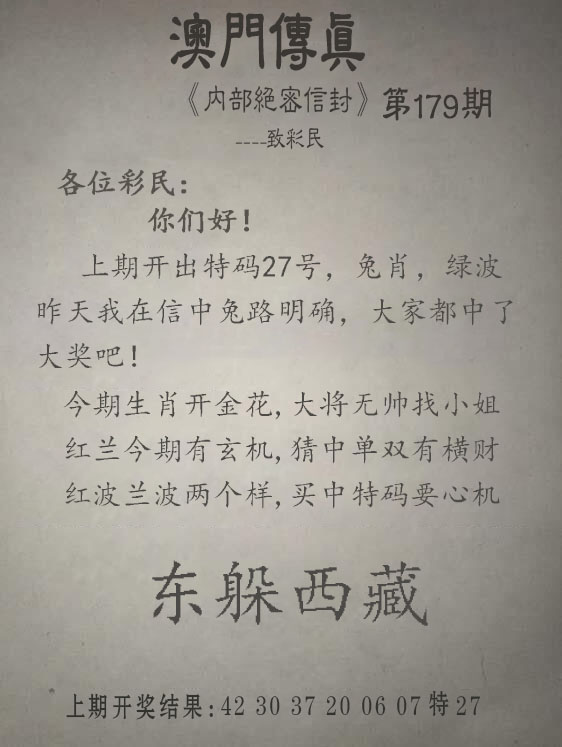 澳門傳真
《内部絕密信封》第179期
----致彩民
各位彩民:
你们好!
上期开出特码27号，兔肖，绿波
昨天我在信中兔路明确，大家都中了
大奖吧!
今期生肖开金花,大将无帅找小姐
红兰今期有玄机,猜中单双有横财
红波兰波两个样,买中特码要心机
东躲西藏
上期开奖结果:42 30 37 20 06 07 特 27